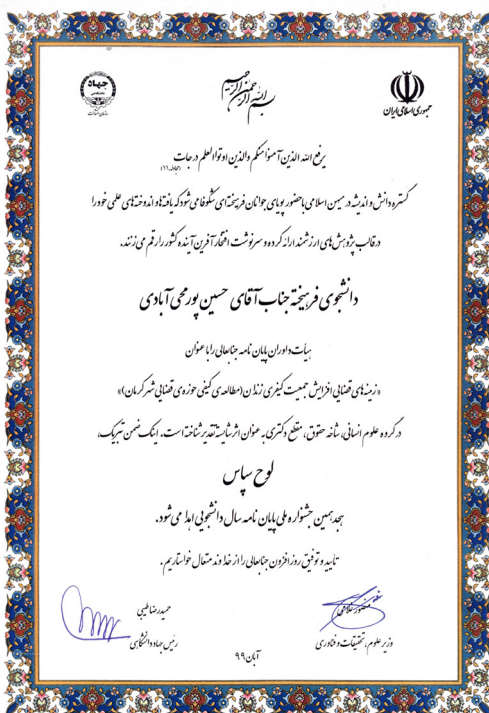 بسم الله الرحمن الرحیم
جهاد
دانشگاهی
جمهوری اسلامی ایران
یرفع الله الذین آمنوا منکم والذین اوتوا العلم درجات (مجادله/۱۱)
گستره دانش و اندیشه در میهن اسلامی با حضور پویای جوانان فرهیخته‌ای شکوفا می‌شود که یافته‌ها و اندوخته‌های علمی خود را
در قالب پژوهش‌های ارزشمند ارائه کرده و سرنوشت افتخارآفرین آینده کشور را رقم می‌زنند.
دانشجوی فرهیخته جناب آقای حسین پورمحی آبادی
هیأت داوران پایان نامه جنابعالی را با عنوان
«زمینه‌های قضایی افزایش جمعیت کیفری زندان (مطالعه‌ی کیفی حوزه‌ی قضایی شهر کرمان)»
در گروه علوم انسانی، شاخه حقوق، مقطع دکتری به عنوان اثر شایسته تقدیر شناخته است. اینک ضمن تبریک،
لوح سپاس
هجدهمین جشنواره ملی پایان نامه سال دانشجویی اهدا می‌شود.
تأیید و توفیق روزافزون جنابعالی را از خداوند متعال خواستاریم.
منصور غلامی
وزیر علوم، تحقیقات و فناوری
حمیدرضا طیبی
رئیس جهاد دانشگاهی
آبان ۹۹